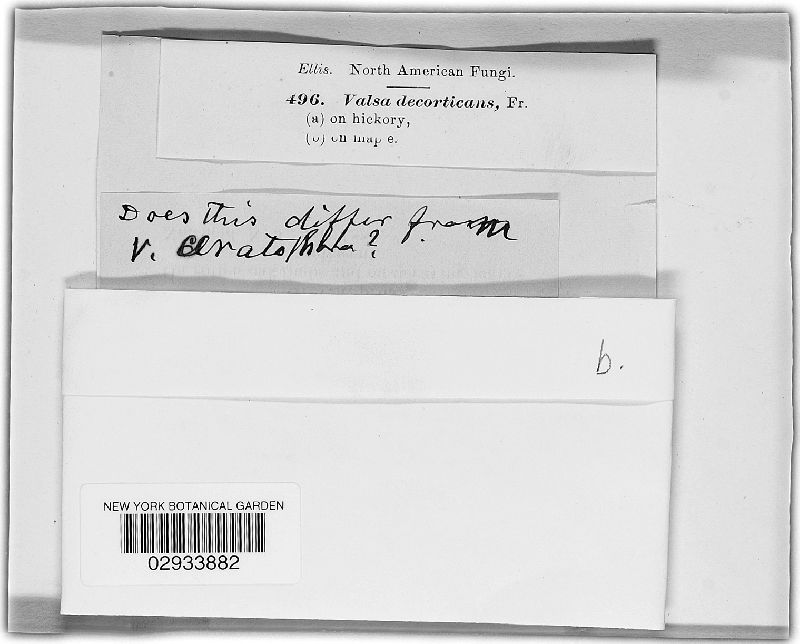 Ellis. North American Fungi.
496. Valsa decorticans, Fr.
(a) on hickory,
(b) on map e.
Does this differ from
V. ceratophora?
b.
NEW YORK BOTANICAL GARDEN
02933882